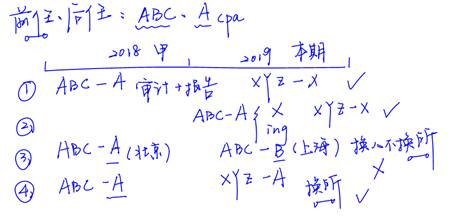 前任、后任：ABC、A cpa
2018 甲 2019 本期
① ABC-A 审计+报告 XYZ-X ✓
② ABC-A { X ing XYZ-X ✓
③ ABC-A (北京) ABC-B (上海) 换人不换所 ×
④ ABC-A XYZ-A 换所 ✓